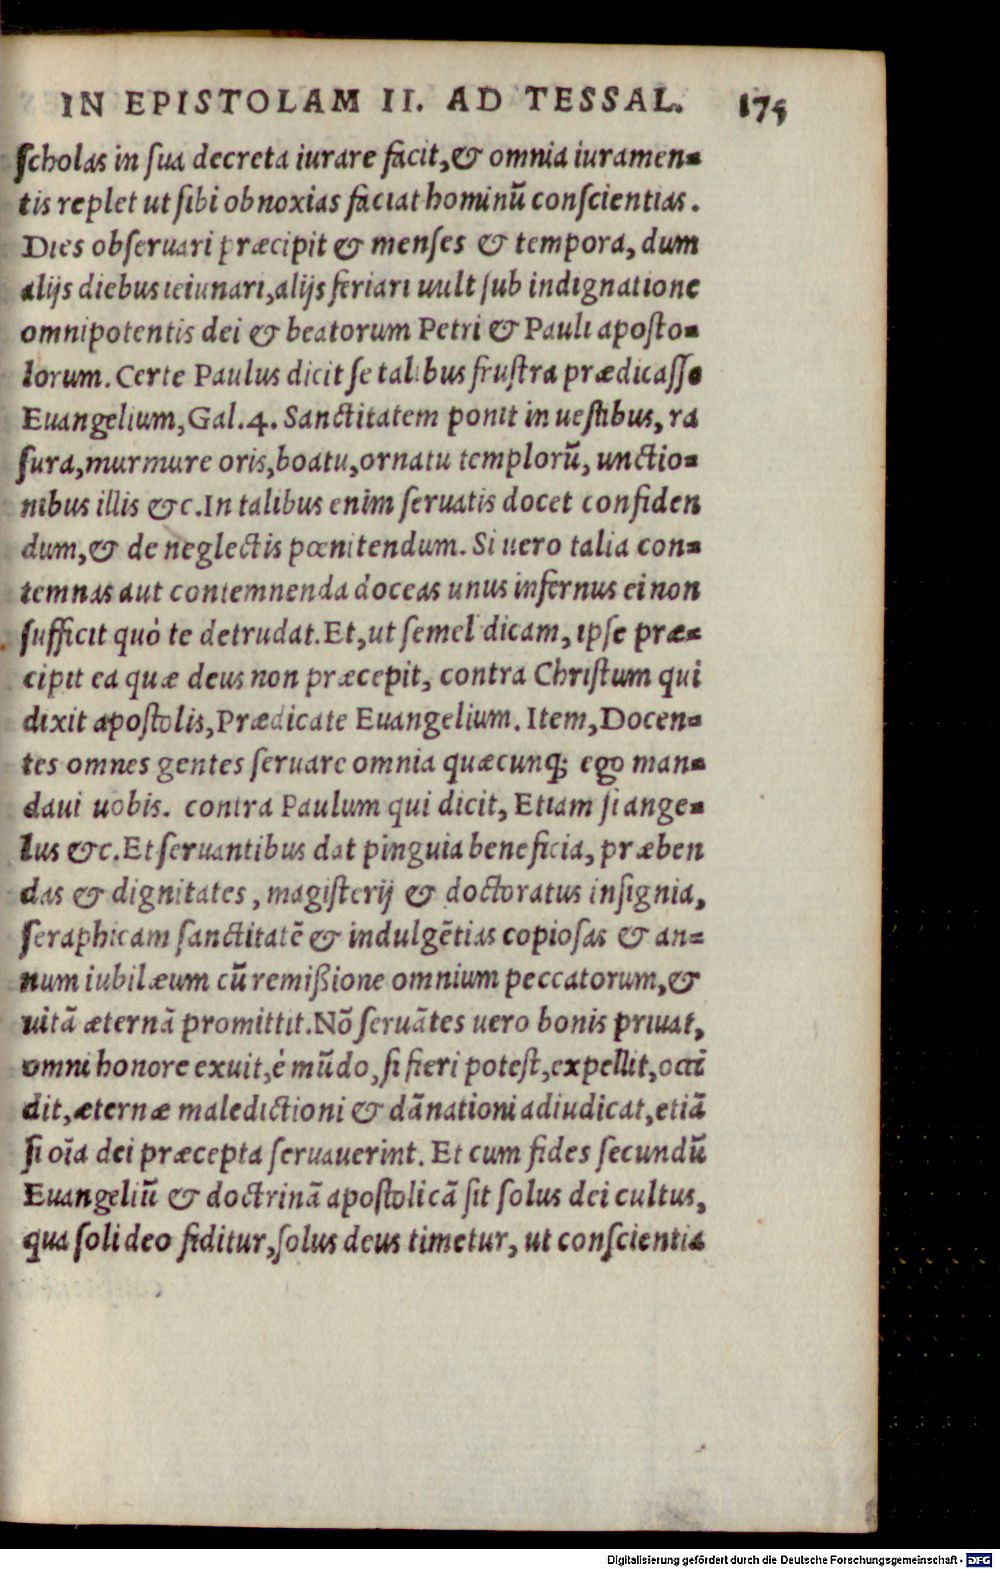 IN EPISTOLAM II. AD TESSAL. 175
ſcholas in ſua decreta iurare facit, & omnia iuramen=
tis replet ut ſibi obnoxias faciat hominū conſcientias.
Dies obſeruari præcipit & menſes & tempora, dum
alijs diebus ieiunari, alijs feriari uult ſub indignatione
omnipotentis dei & beatorum Petri & Pauli apoſto=
lorum. Certe Paulus dicit ſe talibus fruſtra prædicaſſe
Euangelium, Gal. 4. Sanctitatem ponit in ueſtibus, ra
ſura, murmure oris, boatu, ornatu templorū, unctio=
nibus illis &c. In talibus enim ſeruatis docet confiden
dum, & de neglectis pœnitendum. Si uero talia con=
temnas aut contemnenda doceas unus infernus ei non
ſufficit quò te detrudat. Et, ut ſemel dicam, ipſe præ=
cipit ea quæ deus non præcepit, contra Chriſtum qui
dixit apoſtolis, Prædicate Euangelium. Item, Docen=
tes omnes gentes ſeruare omnia quæcunq; ego man=
daui uobis. contra Paulum qui dicit, Etiam ſi ange=
lus &c. Et ſeruantibus dat pinguia beneficia, præben
das & dignitates, magiſterij & doctoratus inſignia,
ſeraphicam ſanctitatē & indulgētias copioſas & an=
num iubilæum cū remißione omnium peccatorum, &
uitā æternā promittit. Nō ſeruātes uero bonis priuat,
omni honore exuit, è mūdo, ſi fieri poteſt, expellit, occi
dit, æternæ maledictioni & dānationi adiudicat, etiā
ſi oīa dei præcepta ſeruauerint. Et cum fides ſecundū
Euangeliū & doctrinā apoſtolicā ſit ſolus dei cultus,
qua ſoli deo fiditur, ſolus deus timetur, ut conſcientia
Digitalisierung gefördert durch die Deutsche Forschungsgemeinschaft - DFG